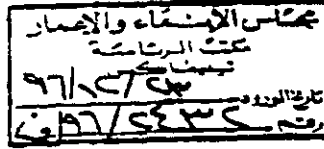 مجلس الإنماء والإعمار
مكتب الرئاسة
٩٦/١٢/٢٣
تاريخ الورود
رقم ٩٦/٢٤٣٢